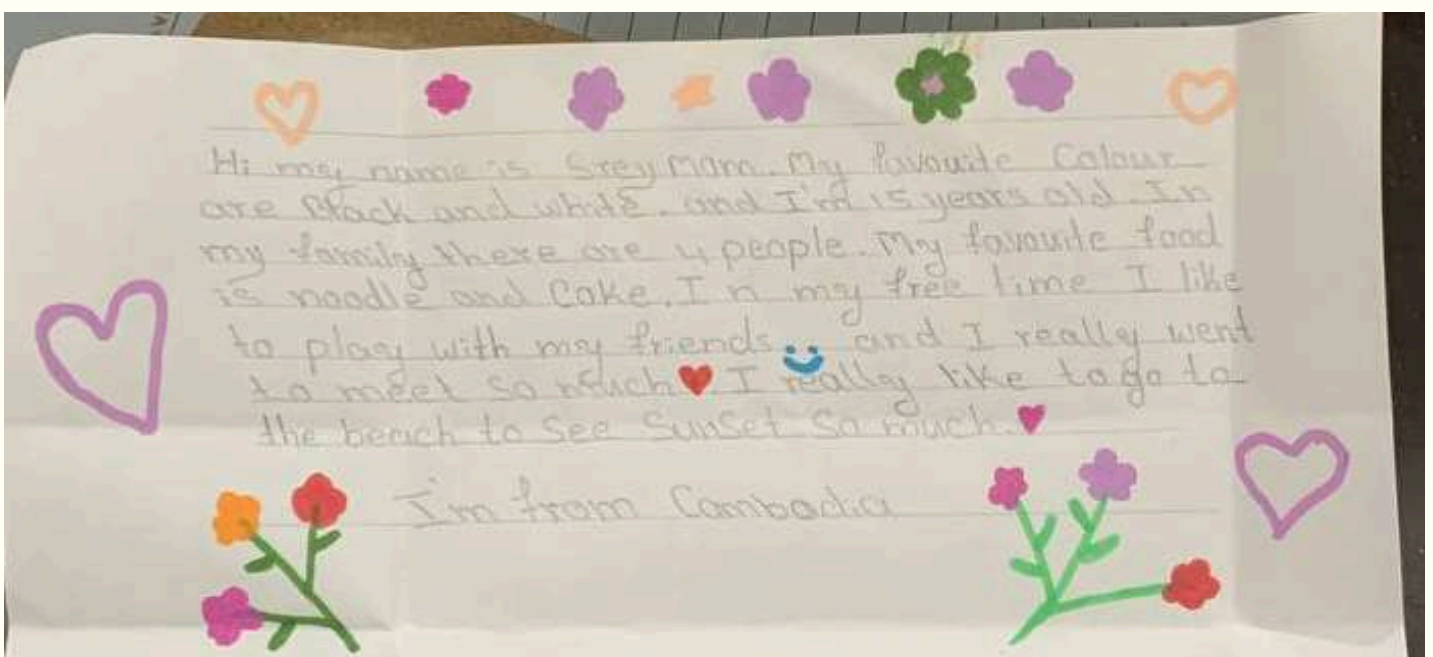 Hi my name is Sreymam. My favourite Colour
are Black and white. and I'm 15 years old. In
my family there are 4 people. My favourite food
is noodle and Cake. In my free time I like
to play with my friends and I really went
to meet so much I really like to go to
the beach to See SunSet So much.
I'm from Cambodia